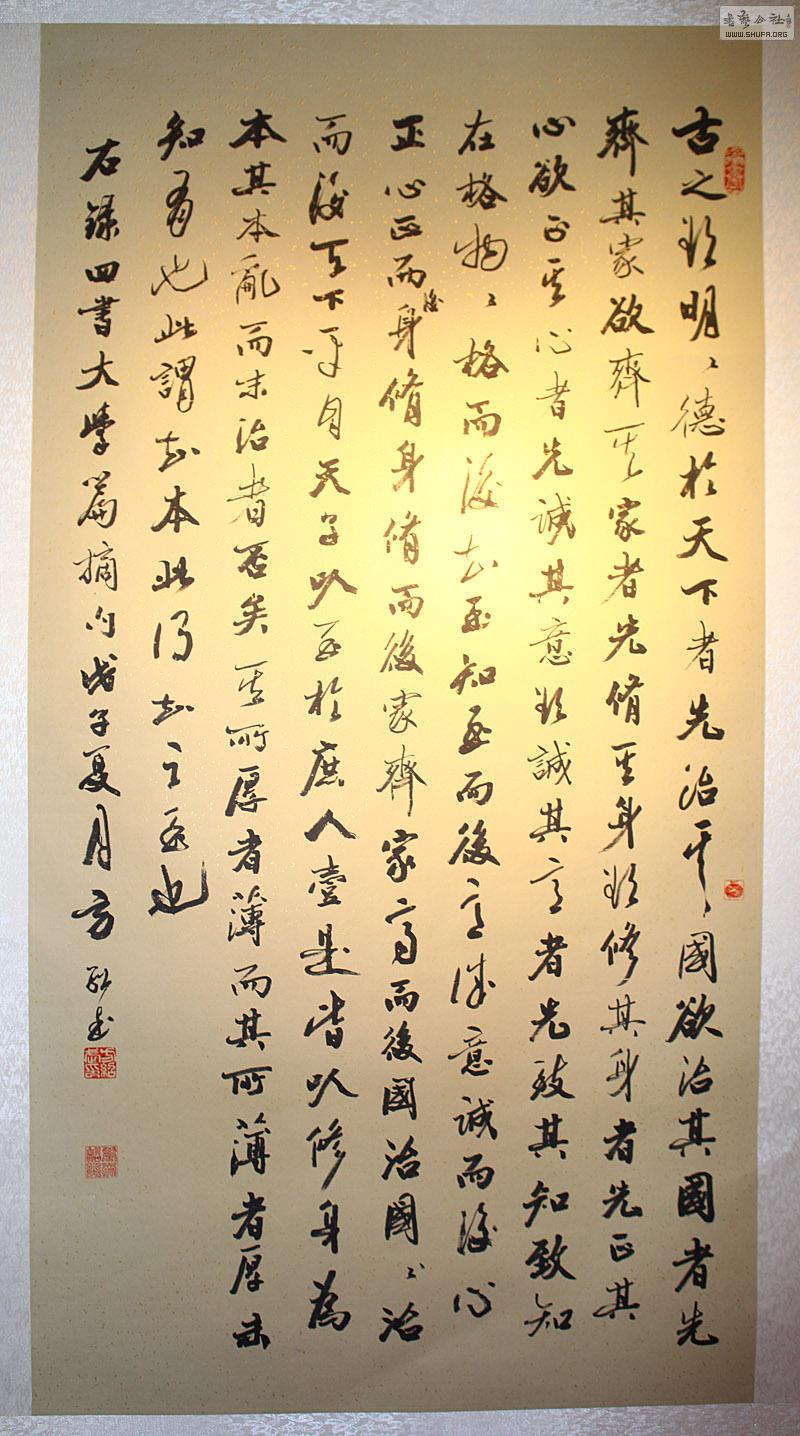 古之欲明〻德於天下者先治其國欲治其國者先
齊其家欲齊其家者先脩其身欲修其身者先正其
心欲正其心者先誠其意欲誠其意者先致其知致知
在格物〻格而後知至知至而後意誠意誠而後心
正心正而後身脩身脩而後家齊家齊而後國治國〻治
而後天下平自天子以至於庶人壹是皆以修身為
本其本亂而末治者否矣其所厚者薄而其所薄者厚未
知有也此謂知本此謂知之至也
右錄四書大學篇摘句戊子夏月方紹武
书艺公社
WWW.SHUFA.ORG